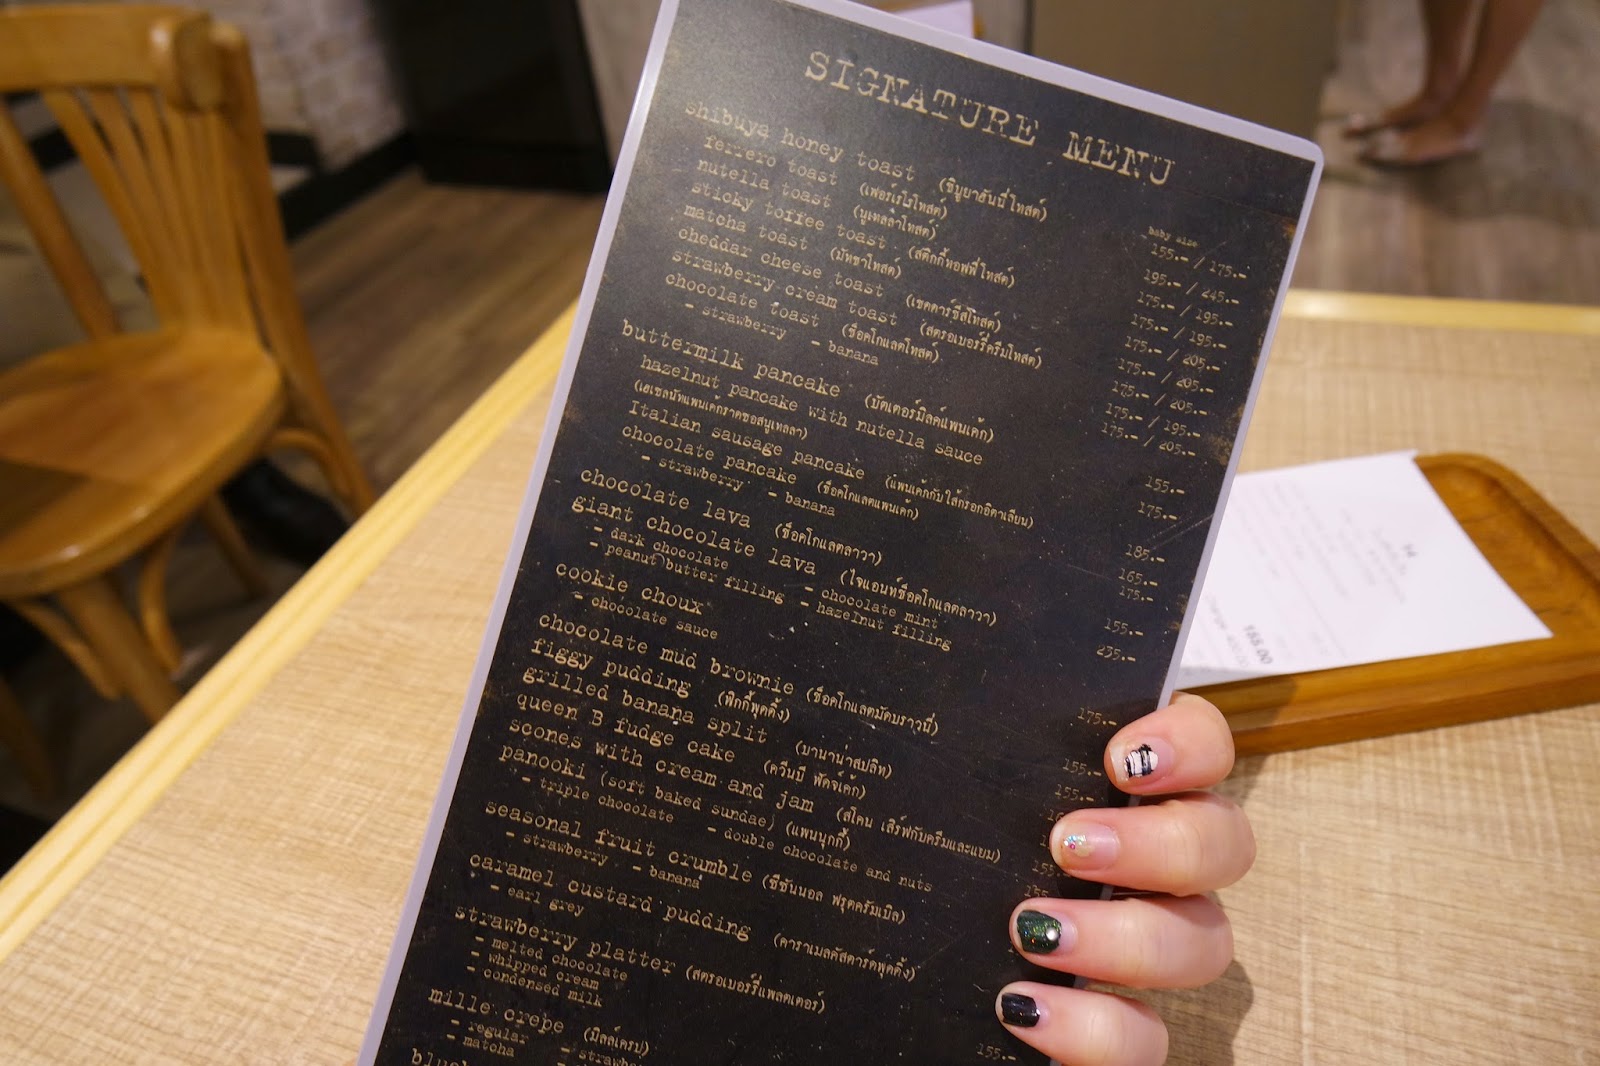 SIGNATURE MENU
baby size
shibuya honey toast (ชิบูยาฮันนี่โทสต์) 155.- / 175.-
ferrero toast (เฟอร์เรโรโทสต์) 195.- / 245.-
nutella toast (นูเทลล่าโทสต์) 175.- / 195.-
sticky toffee toast (สติ๊กกี้ทอฟฟี่โทสต์) 175.- / 195.-
matcha toast (มัทชาโทสต์) 175.- / 205.-
cheddar cheese toast (เชดดาร์ชีสโทสต์) 175.- / 205.-
strawberry cream toast (สตรอเบอร์รี่ครีมโทสต์) 175.- / 205.-
chocolate toast (ช็อคโกแลตโทสต์) 175.- / 195.-
- strawberry - banana 175.- / 205.-
buttermilk pancake (บัตเตอร์มิลค์แพนเค้ก) 155.-
hazelnut pancake with nutella sauce 175.-
(เฮเซลนัทแพนเค้กราดซอสนูเทลลา)
Italian sausage pancake (แพนเค้กกับไส้กรอกอิตาเลียน) 185.-
chocolate pancake (ช็อคโกแลตแพนเค้ก) 165.-
- strawberry - banana 175.-
chocolate lava (ช็อคโกแลตลาวา) 155.-
giant chocolate lava (ไจแอนท์ช็อคโกแลตลาวา) 235.-
- dark chocolate - chocolate mint
- peanut butter filling - hazelnut filling
cookie choux 175.-
- chocolate sauce
chocolate mud brownie (ช็อคโกแลตมัดบราวนี่) 155.-
figgy pudding (ฟิกกี้พุดดิ้ง) 155.-
grilled banana split (บานาน่าสปลิท)
queen B fudge cake (ควีนบี ฟัดจ์เค้ก)
scones with cream and jam (สโคน เสิร์ฟกับครีมและแยม)
panooki (soft baked sundae) (แพนนุกกี้)
- triple chocolate - double chocolate and nuts
seasonal fruit crumble (ซีซันนอล ฟรุตครัมเบิล)
- strawberry - banana
caramel custard pudding (คาราเมลคัสตาร์ดพุดดิ้ง)
- earl grey
strawberry platter (สตรอเบอร์รี่แพลตเตอร์) 155.-
- melted chocolate
- whipped cream
- condensed milk
mille crepe (มิลล์เครป)
- regular
- matcha